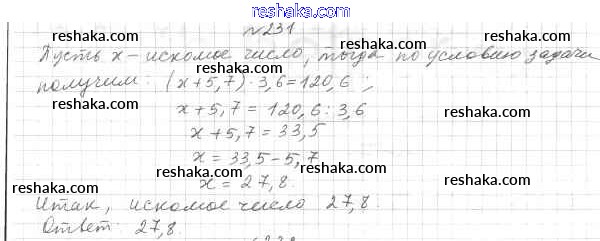 reshaka.com
№231
Пусть x - искомое число, тогда по условию задачи
получим: (x+5,7)·3,6=120,6;
x+5,7=120,6:3,6
x+5,7=33,5
x=33,5-5,7
x=27,8.
Итак, искомое число 27,8.
Ответ: 27,8.
reshaka.com
reshaka.com
reshaka.com
reshaka.com
reshaka.com
reshaka.com
reshaka.com
reshaka.com
reshaka.com
reshaka.com
reshaka.com